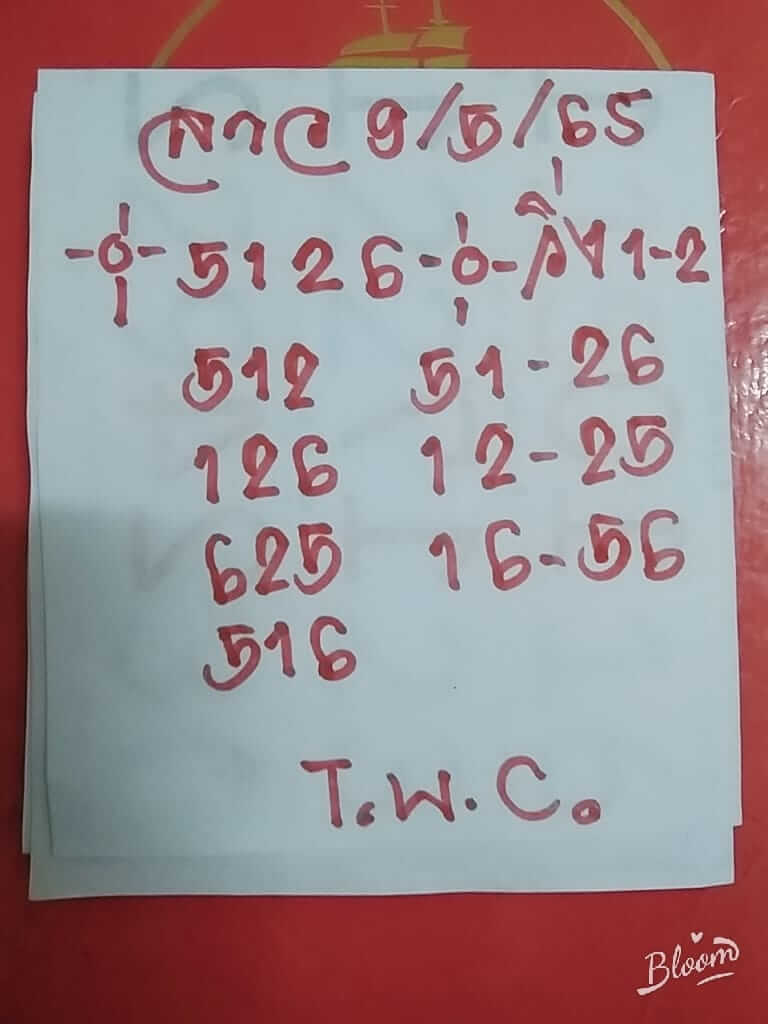 ลาว 9/5/65
5126 วิ่ง 1-2
512 51-26
126 12-25
625 16-56
516
T.W.C.
Bloom